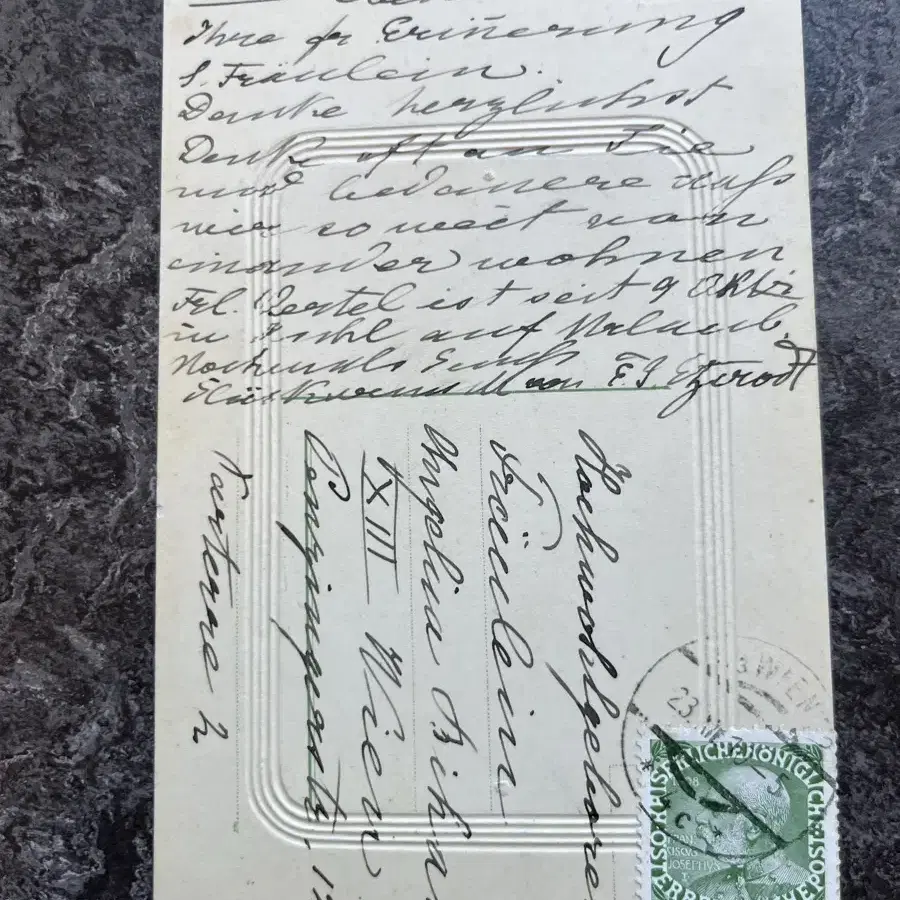 Ihre fr Erin̄erung
l. Fräulein.
Danke herzlichst
Denke oft an Sie
und bedauere dass
wir so weit von
einander wohnen
Frl. ist seit 9 Oktbr
in Ischl auf Urlaub.
Nochmals Gruß
von F. J. Etzerodt
Hochwohlgeboren
Fräulein
Angelina
XIII Wien
Penzingerstr.
Parterre 2
WIEN
23
KAISERLICHE KÖNIGLICHE ÖSTERREICHISCHE POST
FRANCISCUS
JOSEPHUS